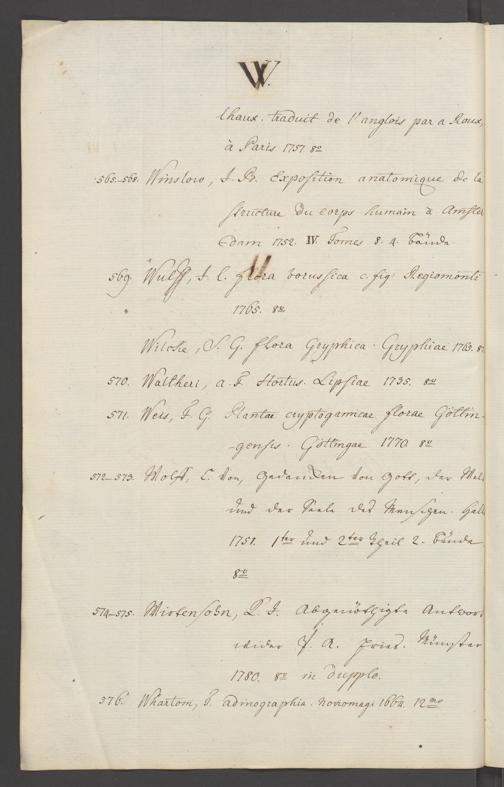 W.
chaux. traduit de l'anglois par a Roux,
à Paris 1757. 8º
565–568. Winslow, J. B. Exposition anatomique de la
structure du corps humain à Amster
dam 1752. IV Tomes 8. 4. bände
569. Wulff, J. C. flora borussica c. fig. Regiomonti
1765. 8º
Wilcke, S. G. flora Gryphica. Gryphiae 1763. 8º
570. Waltheri, a. F. Hortus. Lipsiae 1735. 8º
571. Weis, F. G. Plantae cryptogamicae florae Götting-
gensis. Göttingae 1770 8º
572–573. Wolff, C. von, Gedancken von Gott, der Welt
und der Seele des Menschen. Hall
1751. 1ter und 2ter Theil 2. bände
8º
574–575. Wirtensohn, J. Abgenöthigte Antwort
wider Fries. Münster
1780. 8º in dupplo.
576. Whartom, T. adenographia. Noviomagi 1664. 12mo